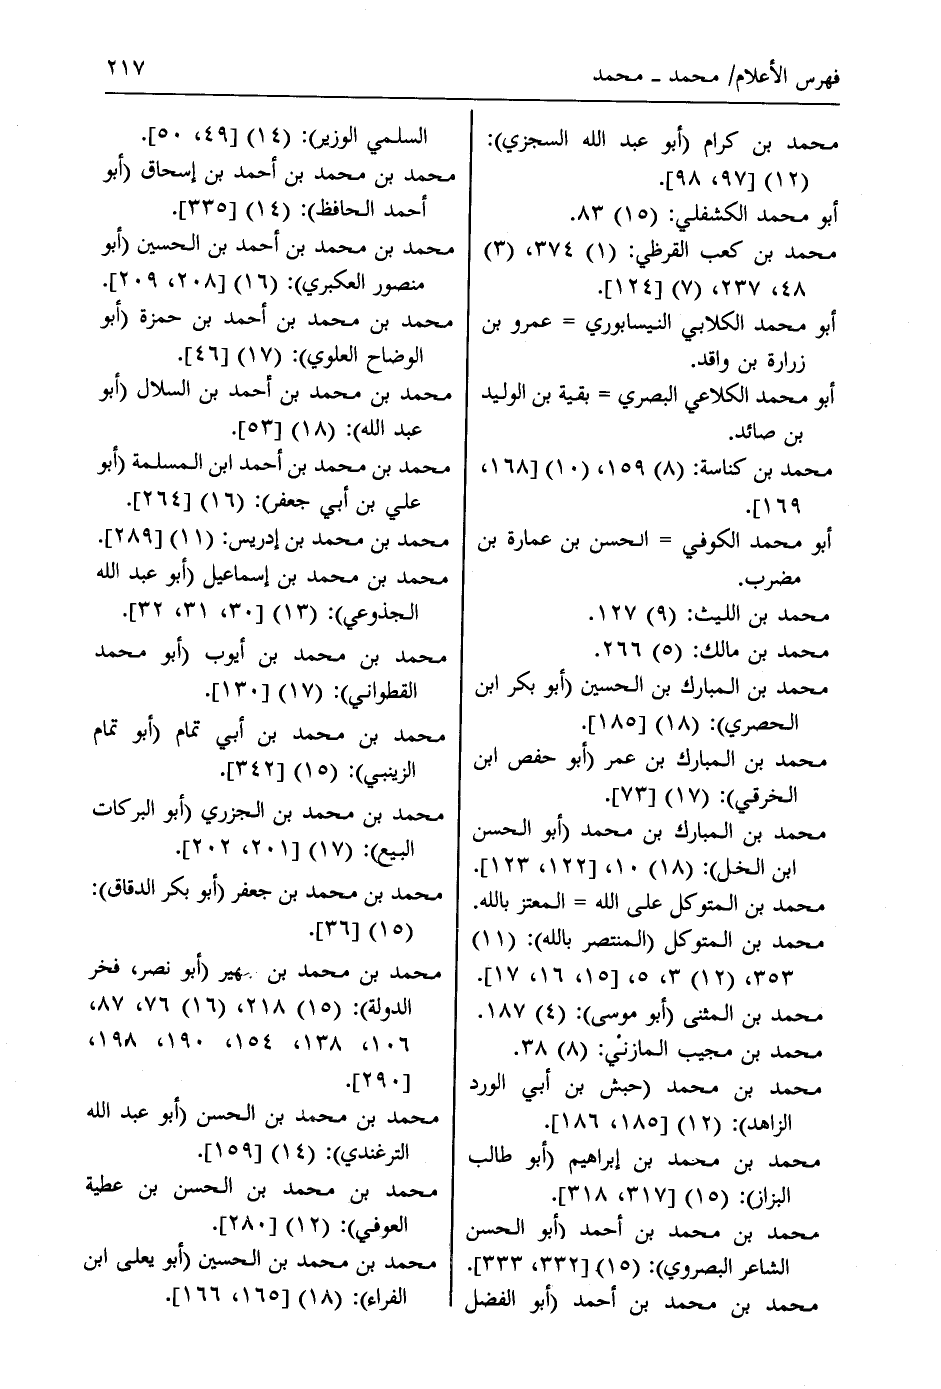 فهرس الأعلام/ محمد ـ محمد
٢١٧
محمد بن كرام (أبو عبد الله السجزي):
(١٢) [٩٧، ٩٨].
أبو محمد الكشفلي: (١٥) ٨٣.
محمد بن كعب القرظي: (١) ٣٧٤، (٣)
٤٨، ٢٣٧، (٧) [١٢٤].
أبو محمد الكلابي النيسابوري = عمرو بن
زرارة بن واقد.
أبو محمد الكلاعي البصري = بقية بن الوليد
بن صائد.
محمد بن كناسة: (٨) ١٥٩، (١٠) [١٦٨،
١٦٩].
أبو محمد الكوفي = الحسن بن عمارة بن
مضرب.
محمد بن الليث: (٩) ١٢٧.
محمد بن مالك: (٥) ٢٦٦.
محمد بن المبارك بن الحسين (أبو بكر ابن
الحصري): (١٨) [١٨٥].
محمد بن المبارك بن عمر (أبو حفص ابن
الخرقي): (١٧) [٧٣].
محمد بن المبارك بن محمد (أبو الحسن
ابن الخل): (١٨) ١٠، [١٢٢، ١٢٣].
محمد بن المتوكل على الله = المعتز بالله.
محمد بن المتوكل (المنتصر بالله): (١١)
٣٥٣، (١٢) ٣، ٥، [١٥، ١٦، ١٧].
محمد بن المثنى (أبو موسى): (٤) ١٨٧.
محمد بن مجيب المازني: (٨) ٣٨.
محمد بن محمد (حبش بن أبي الورد
الزاهد): (١٢) [١٨٥، ١٨٦].
محمد بن محمد بن إبراهيم (أبو طالب
البزاز): (١٥) [٣١٧، ٣١٨].
محمد بن محمد بن أحمد (أبو الحسن
الشاعر البصروي): (١٥) [٣٣٢، ٣٣٣].
محمد بن محمد بن أحمد (أبو الفضل
السلمي الوزير): (١٤) [٤٩، ٥٠].
محمد بن محمد بن أحمد بن إسحاق (أبو
أحمد الحافظ): (١٤) [٣٣٥].
محمد بن محمد بن أحمد بن الحسين (أبو
منصور العكبري): (١٦) [٢٠٨، ٢٠٩].
محمد بن محمد بن أحمد بن حمزة (أبو
الوضاح العلوي): (١٧) [٤٦].
محمد بن محمد بن أحمد بن السلال (أبو
عبد الله): (١٨) [٥٣].
محمد بن محمد بن أحمد ابن المسلمة (أبو
علي بن أبي جعفر): (١٦) [٢٦٤].
محمد بن محمد بن إدريس: (١١) [٢٨٩].
محمد بن محمد بن إسماعيل (أبو عبد الله
الجذوعي): (١٣) [٣٠، ٣١، ٣٢].
محمد بن محمد بن أيوب (أبو محمد
القطواني): (١٧) [١٣٠].
محمد بن محمد بن أبي تمام (أبو تمام
الزينبي): (١٥) [٣٤٢].
محمد بن محمد بن الجزري (أبو البركات
البيع): (١٧) [٢٠١، ٢٠٢].
محمد بن محمد بن جعفر (أبو بكر الدقاق):
(١٥) [٣٦].
محمد بن محمد بن (أبو نصر، فخر
الدولة): (١٥) ٢١٨، (١٦) ٧٦، ٨٧،
١٠٦، ١٣٨، ١٥٤، ١٩٠، ١٩٨،
[٢٩٠].
محمد بن محمد بن الحسن (أبو عبد الله
الترغندي): (١٤) [١٥٩].
محمد بن محمد بن الحسن بن عطية
العوفي): (١٢) [٢٨٠].
محمد بن محمد بن الحسين (أبو يعلى ابن
الفراء): (١٨) [١٦٥، ١٦٦].